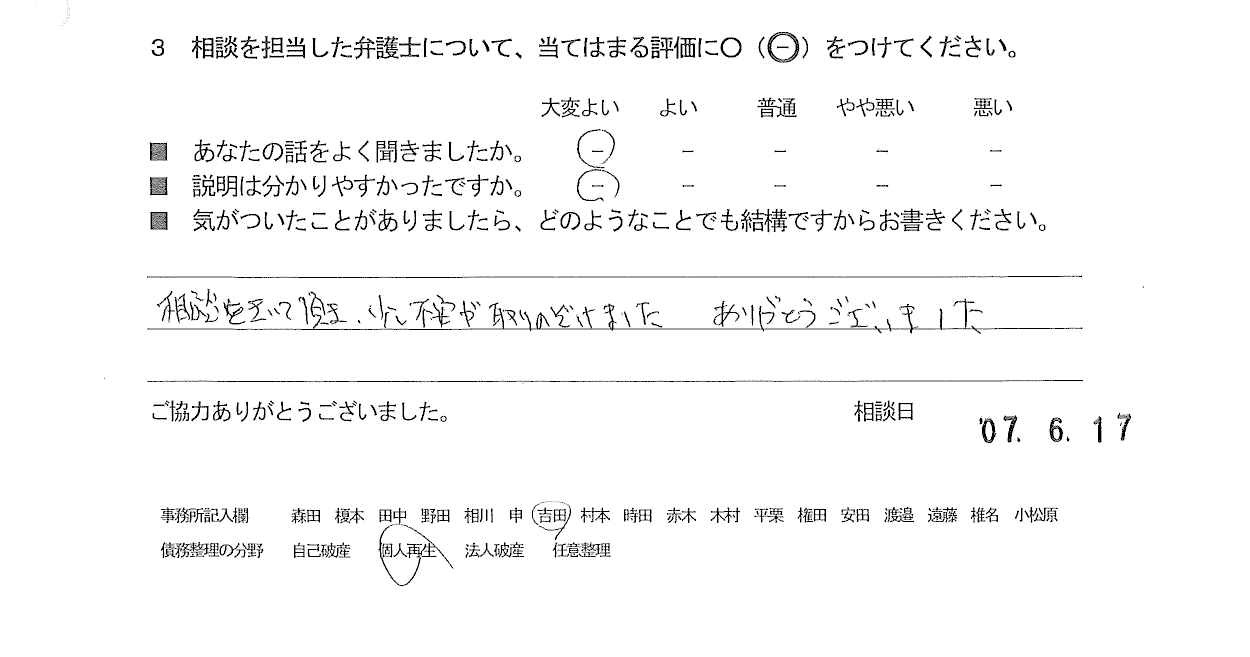 3 相談を担当した弁護士について、当てはまる評価に○（㊀）をつけてください。
大変よい よい 普通 やや悪い 悪い
■ あなたの話をよく聞きましたか。 － － － － －
■ 説明は分かりやすかったですか。 － － － － －
■ 気がついたことがありましたら、どのようなことでも結構ですからお書きください。
相談を 頂き、少し不安が取りのぞけました ありがとうございました
ご協力ありがとうございました。 相談日 '07. 6. 17
事務所記入欄 森田 榎本 田中 野田 相川 申 吉田 村本 時田 赤木 木村 平栗 権田 安田 渡邉 遠藤 椎名 小松原
債務整理の分野 自己破産 個人再生 法人破産 任意整理